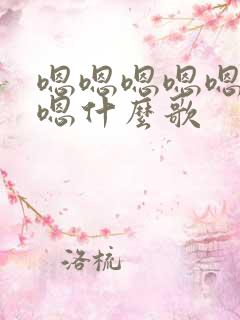 嗯嗯嗯嗯嗯
嗯什麼歌
洛梳